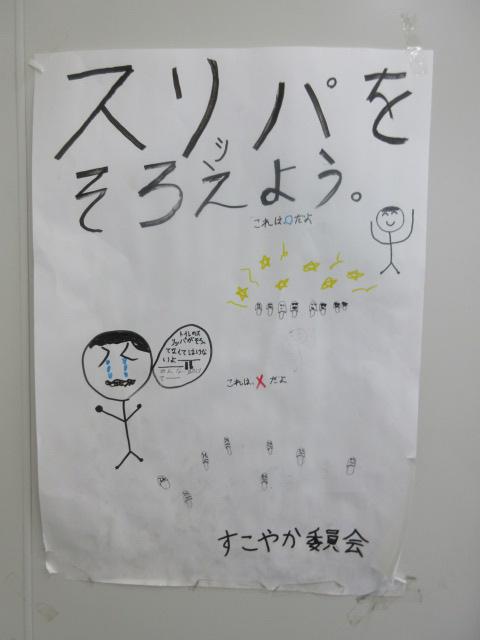 スリッパを
そろえよう。
これは○だよ
トイレのス
リッパがそろっ
てなくてはけな
いよー!!
これは、×だよ
すこやか委員会